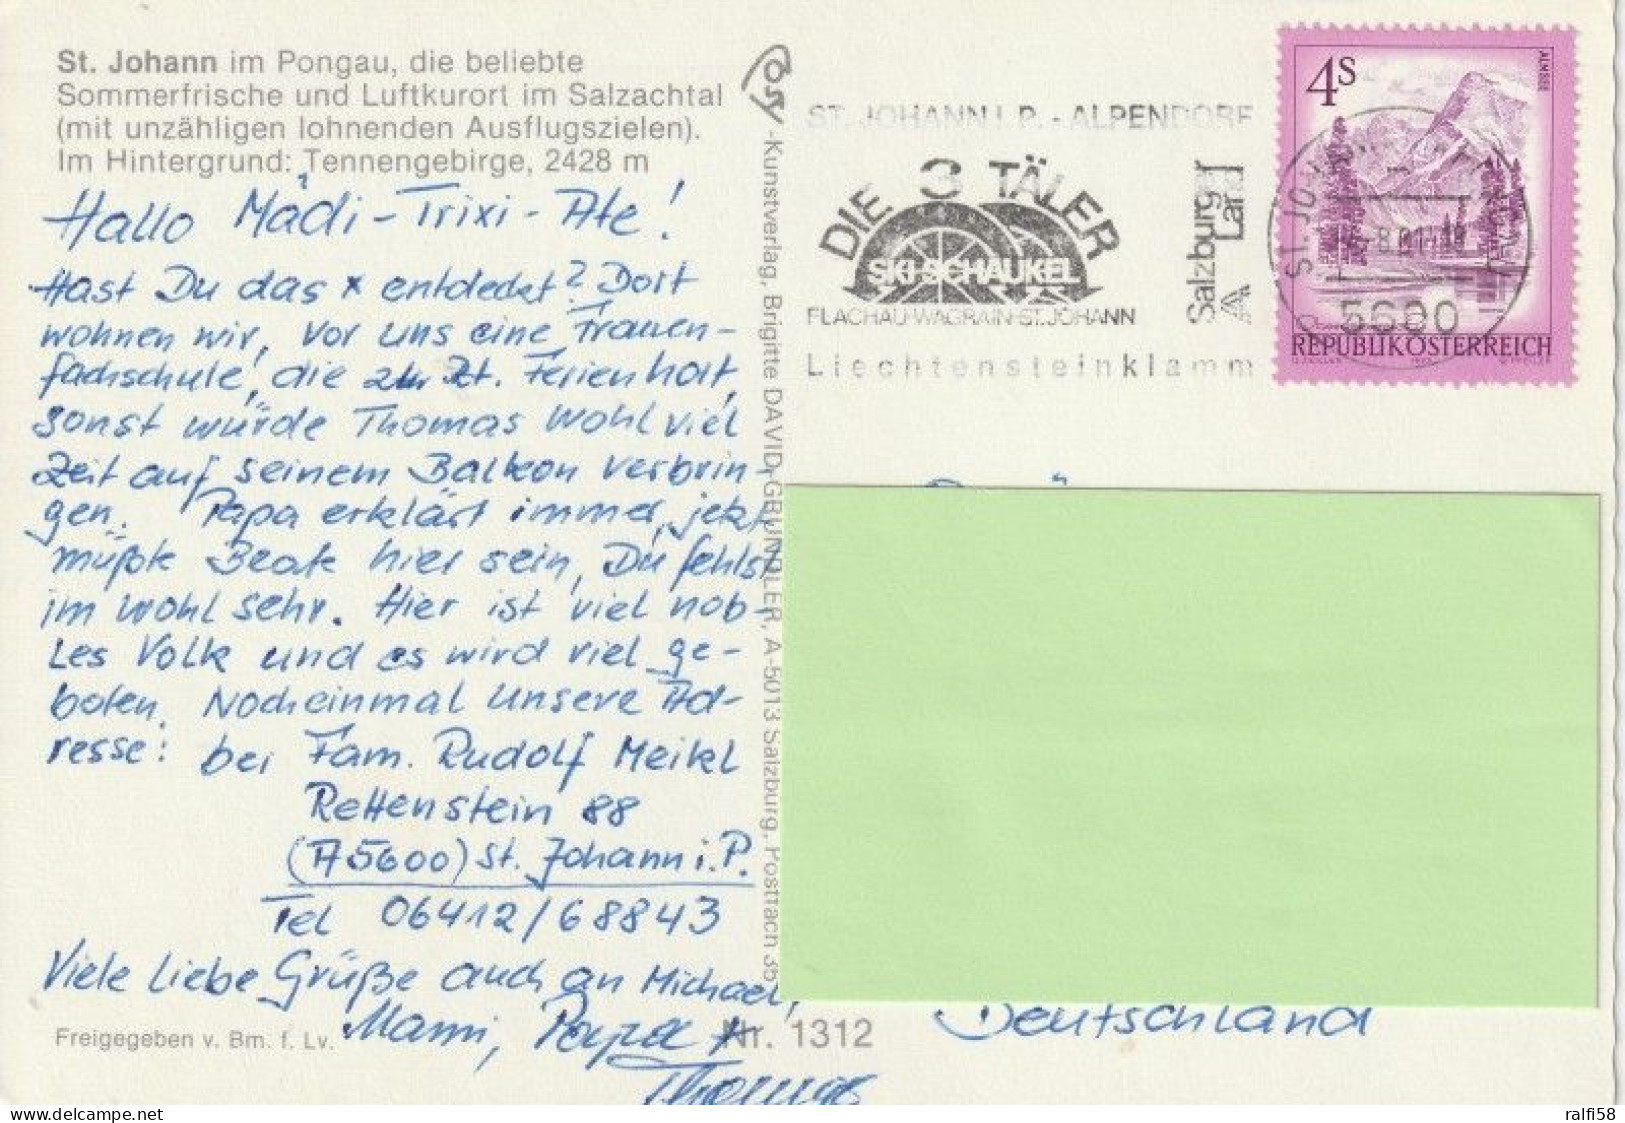 St. Johann im Pongau, die beliebte
Sommerfrische und Luftkurort im Salzachtal
(mit unzähligen lohnenden Ausflugszielen).
Im Hintergrund: Tennengebirge, 2428 m
Hallo Mädi-Trixi-Ate!
Hast Du das x entdeckt? Dort
wohnen wir, vor uns eine Frauen-
fachschule, die zur Zt. Ferien hat,
sonst würde Thomas wohl viel
Zeit auf seinem Balkon verbrin-
gen. Papa erklärt immer, jetzt
müßte Beate hier sein, Du fehlst
im wohl sehr. Hier ist viel nob-
les Volk und es wird viel ge-
boten. Nocheinmal unsere Ad-
resse: bei Fam. Rudolf Meikl
Rettenstein 88
(A5600) St. Johann i. P.
Tel 06412/68843
Viele liebe Grüße auch an Michael,
Mami, Papa +
Thomas
Freigegeben v. Bm. f. Lv.
Nr. 1312
-Kunstverlag, Brigitte DAVID-GRUNDLER, A-5013 Salzburg, Postfach 35
ST. JOHANN I. P. - ALPENDORF
DIE 3 TÄLER
SKI-SCHAUKEL
FLACHAU-WAGRAIN-ST.JOHANN
Liechtensteinklamm
Salzburger
Land
4S
ALMSEE
5600
REPUBLIK ÖSTERREICH
Deutschland
ralfi58